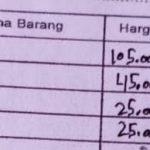 na Barang Harg
105.00
45.0
25.0
25.0